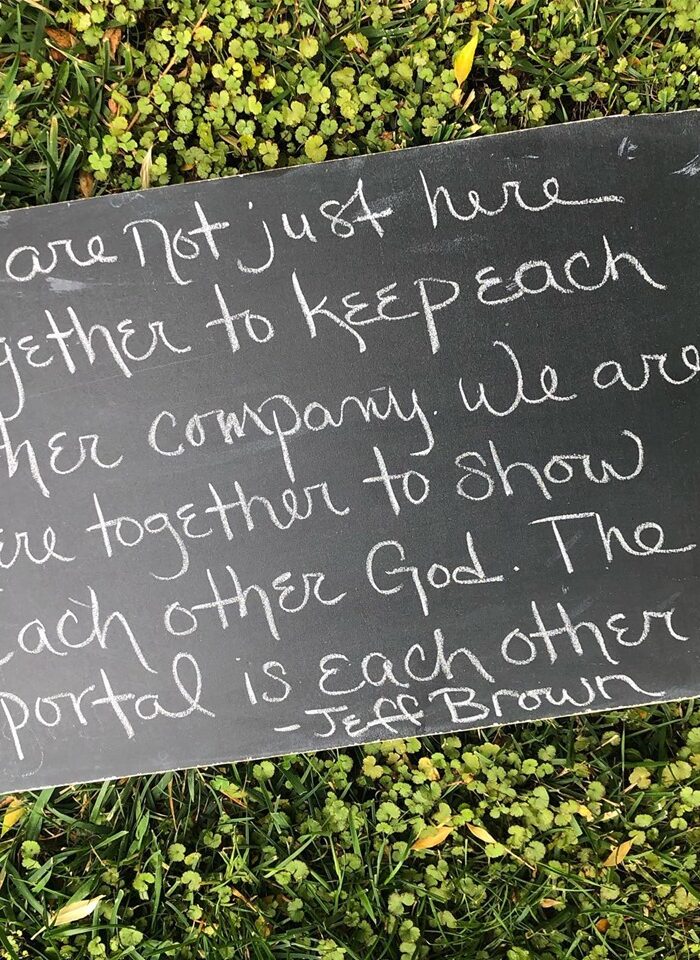 are not just here
gether to keep each
her company. We are
ere together to show
Each other God. The
portal is each other
-Jeff Brown